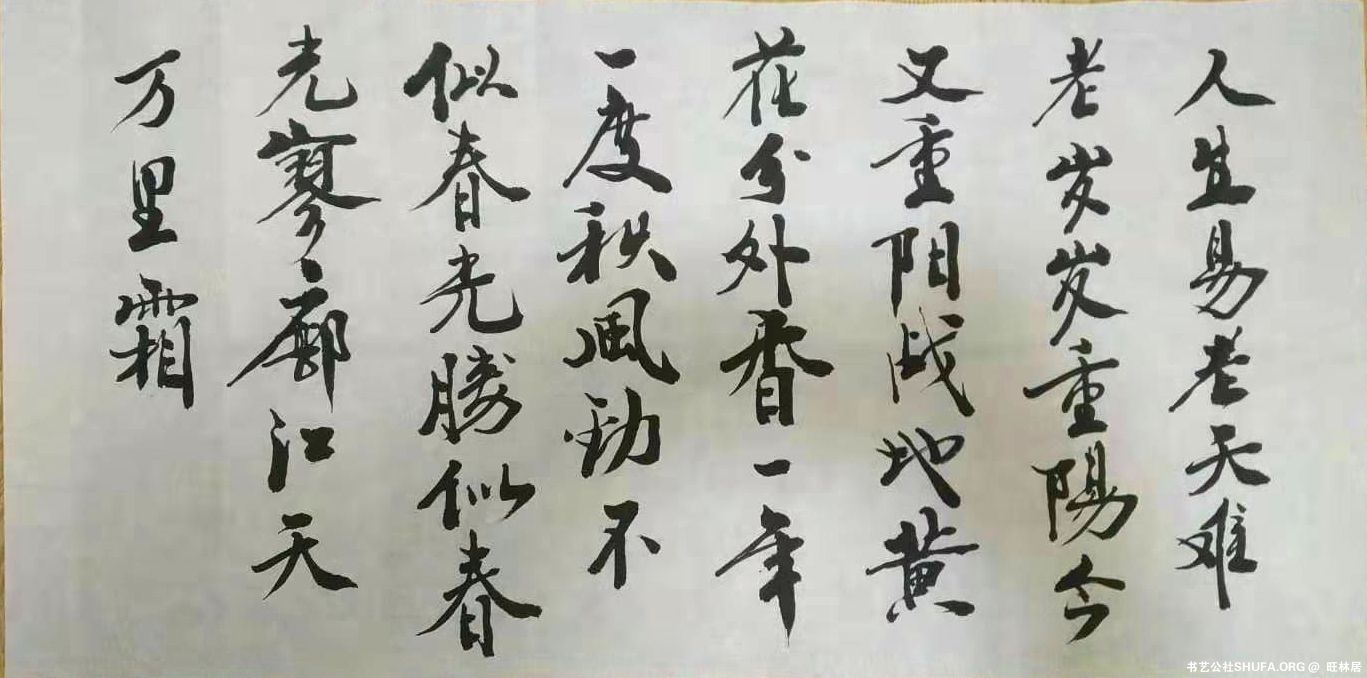 人生易老天难
老岁岁重陽今
又重阳战地黄
花分外香一年
一度秋風劲不
似春光勝似春
光寥廓江天
万里霜
书艺公社SHUFA.ORG @ 旺林居